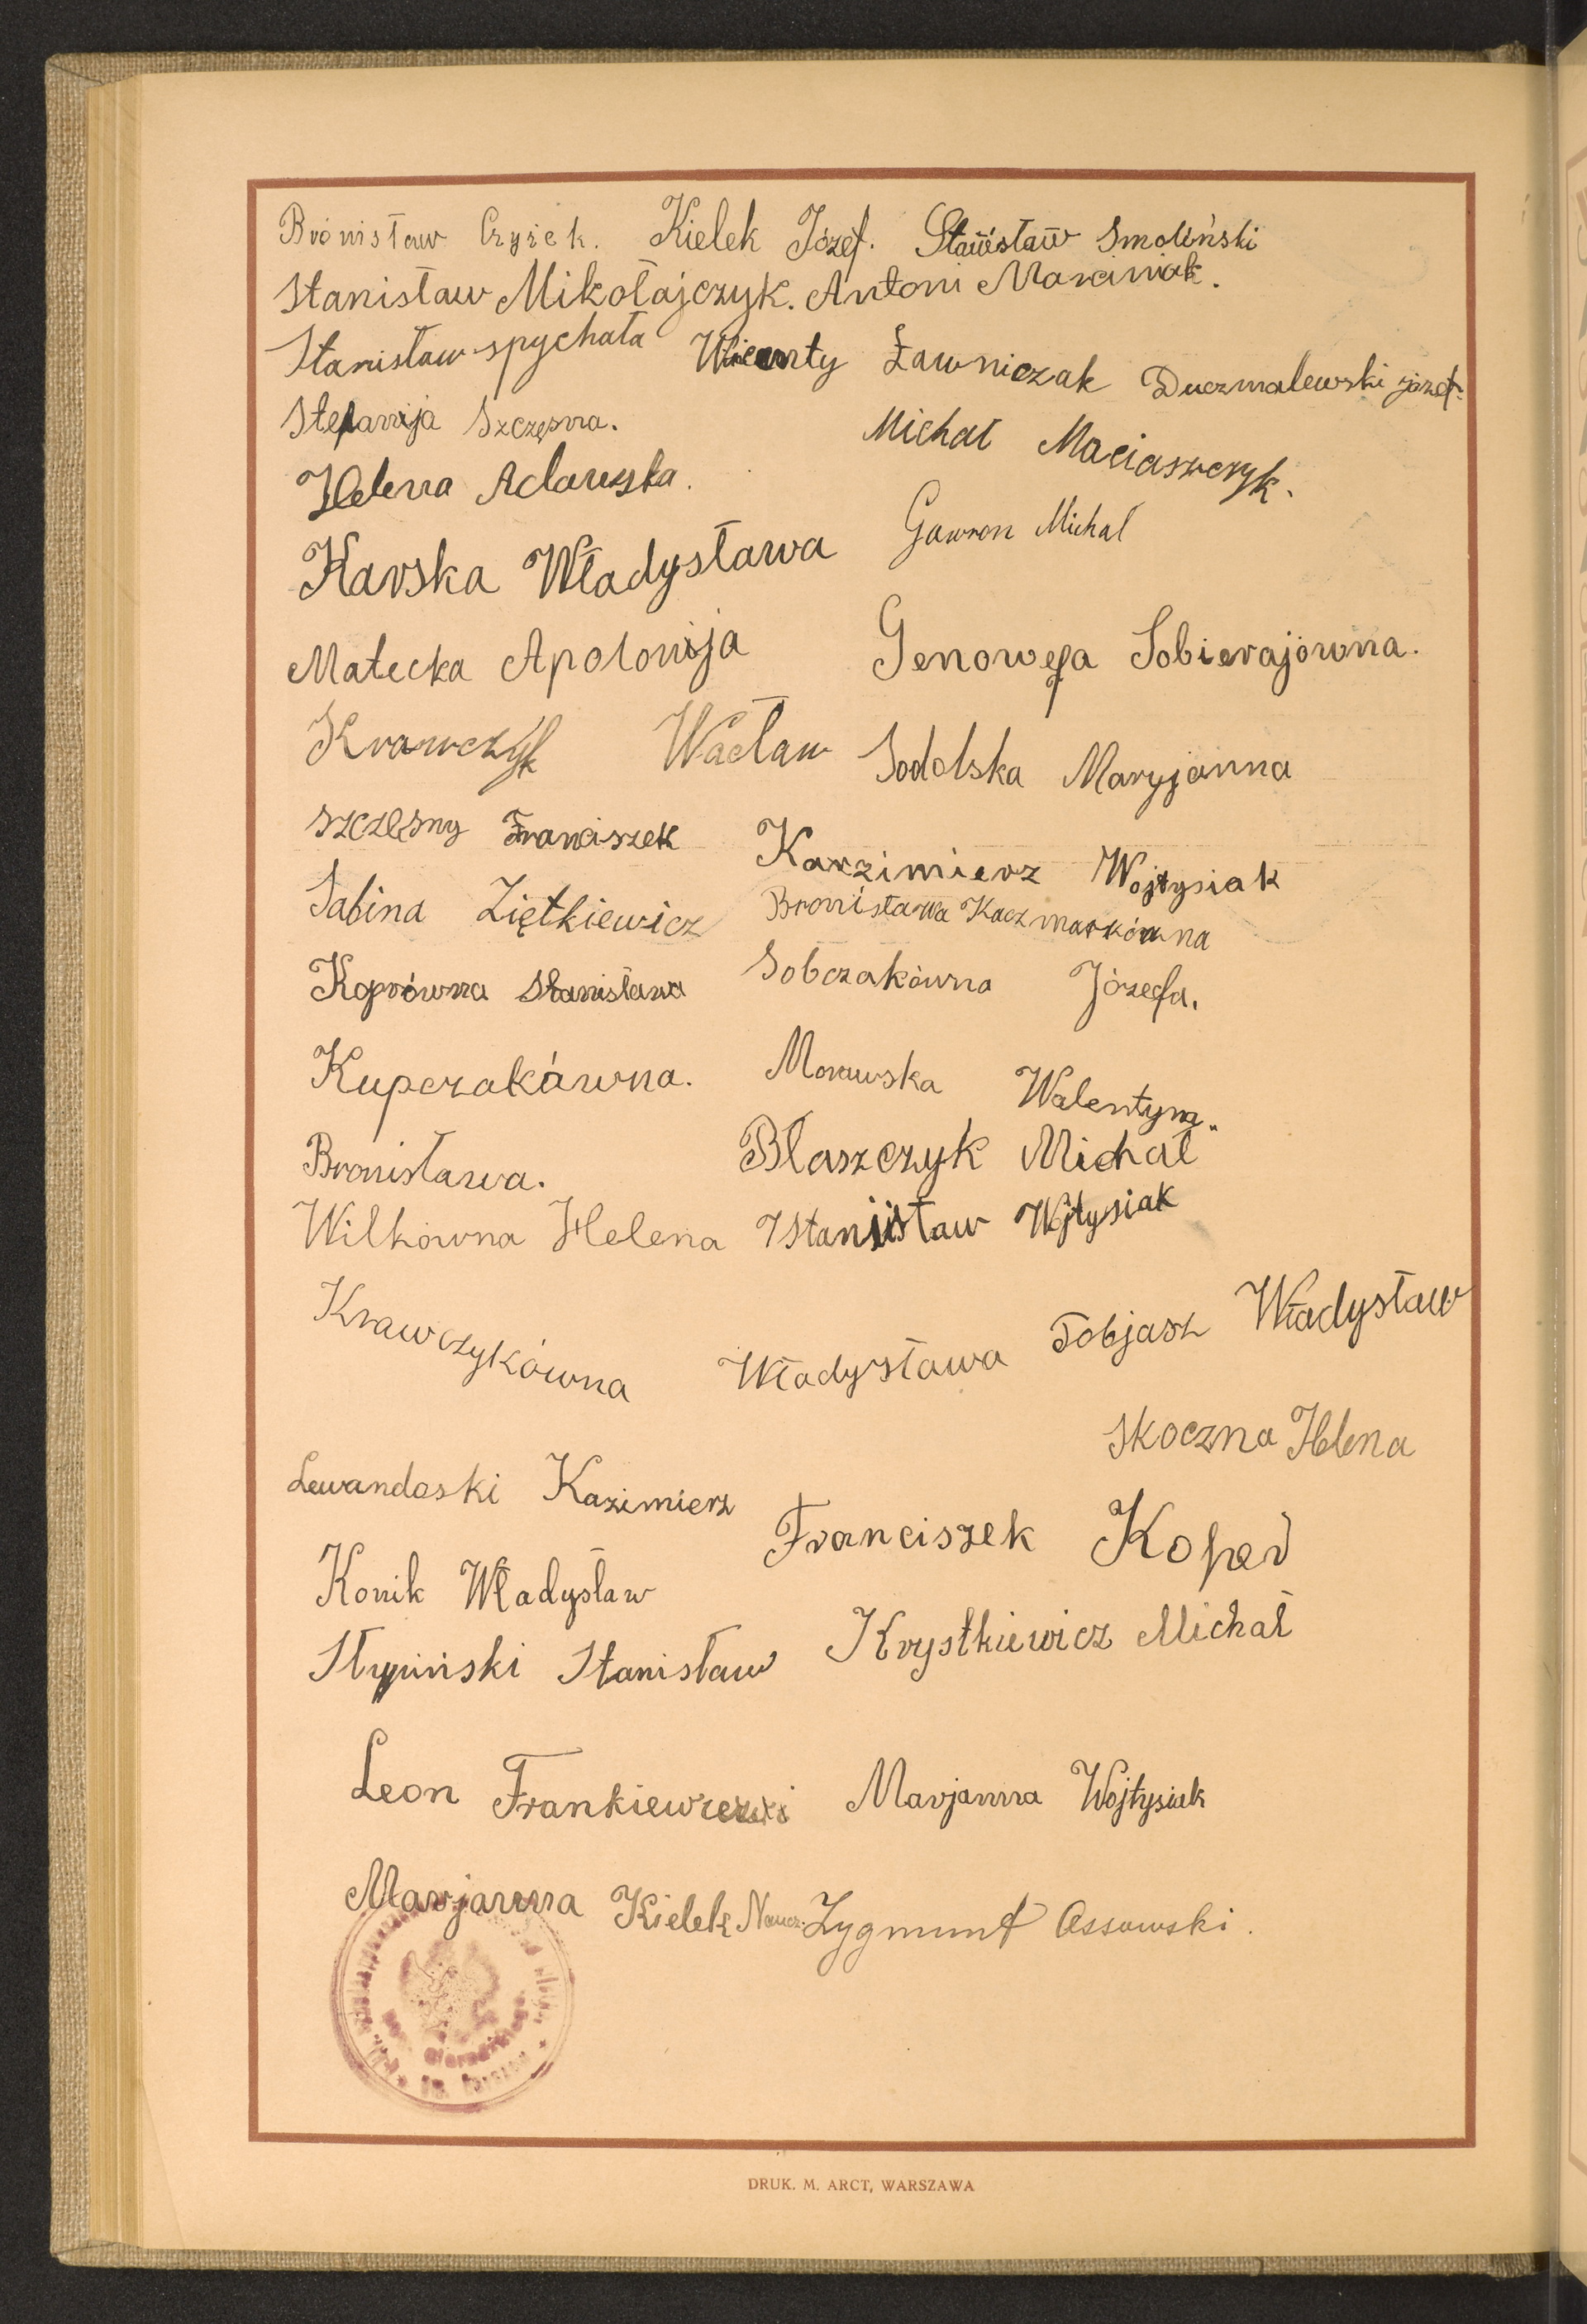 Bronisław Czyżek. Kielek Józef. Stanisław Smoliński
Stanisław Mikołajczyk. Antoni Marciniak.
Stanisław spychała Wincenty Ławniczak Duczmalewski józef.
Stefanija Szczęsna. Michał Maciaszczyk.
Helena Adamska.
Karska Władysława Gawron Michał
Małecka Apolonija Genowefa Sobierajówna.
Krawczyk Wacław Sodolska Maryjanna
szczęsny Franciszek Karzimierz Wojtysiak
Sabina Ziętkiewicz Bronisława Kaczmarkówna
Koprówna Stanisława Sobczakówna Józefa.
Kupczakówna. Morawska Walentyna
Bronisława. Blaszczyk Michał
Wilkówna Helena Stanisław Wojtysiak
Krawczykówna Władysława Tobjasz Władysław
Skoczna Helena
Lewandoski Kazimierz Franciszek Koper
Konik Władysław
Stypiński Stanisław Krystkiewicz Michał
Leon Frankiewiczki Marjanna Wojtysiak
Marjanna Kielek Naucz. Zygmunt Ossowski.
DRUK. M. ARCT, WARSZAWA